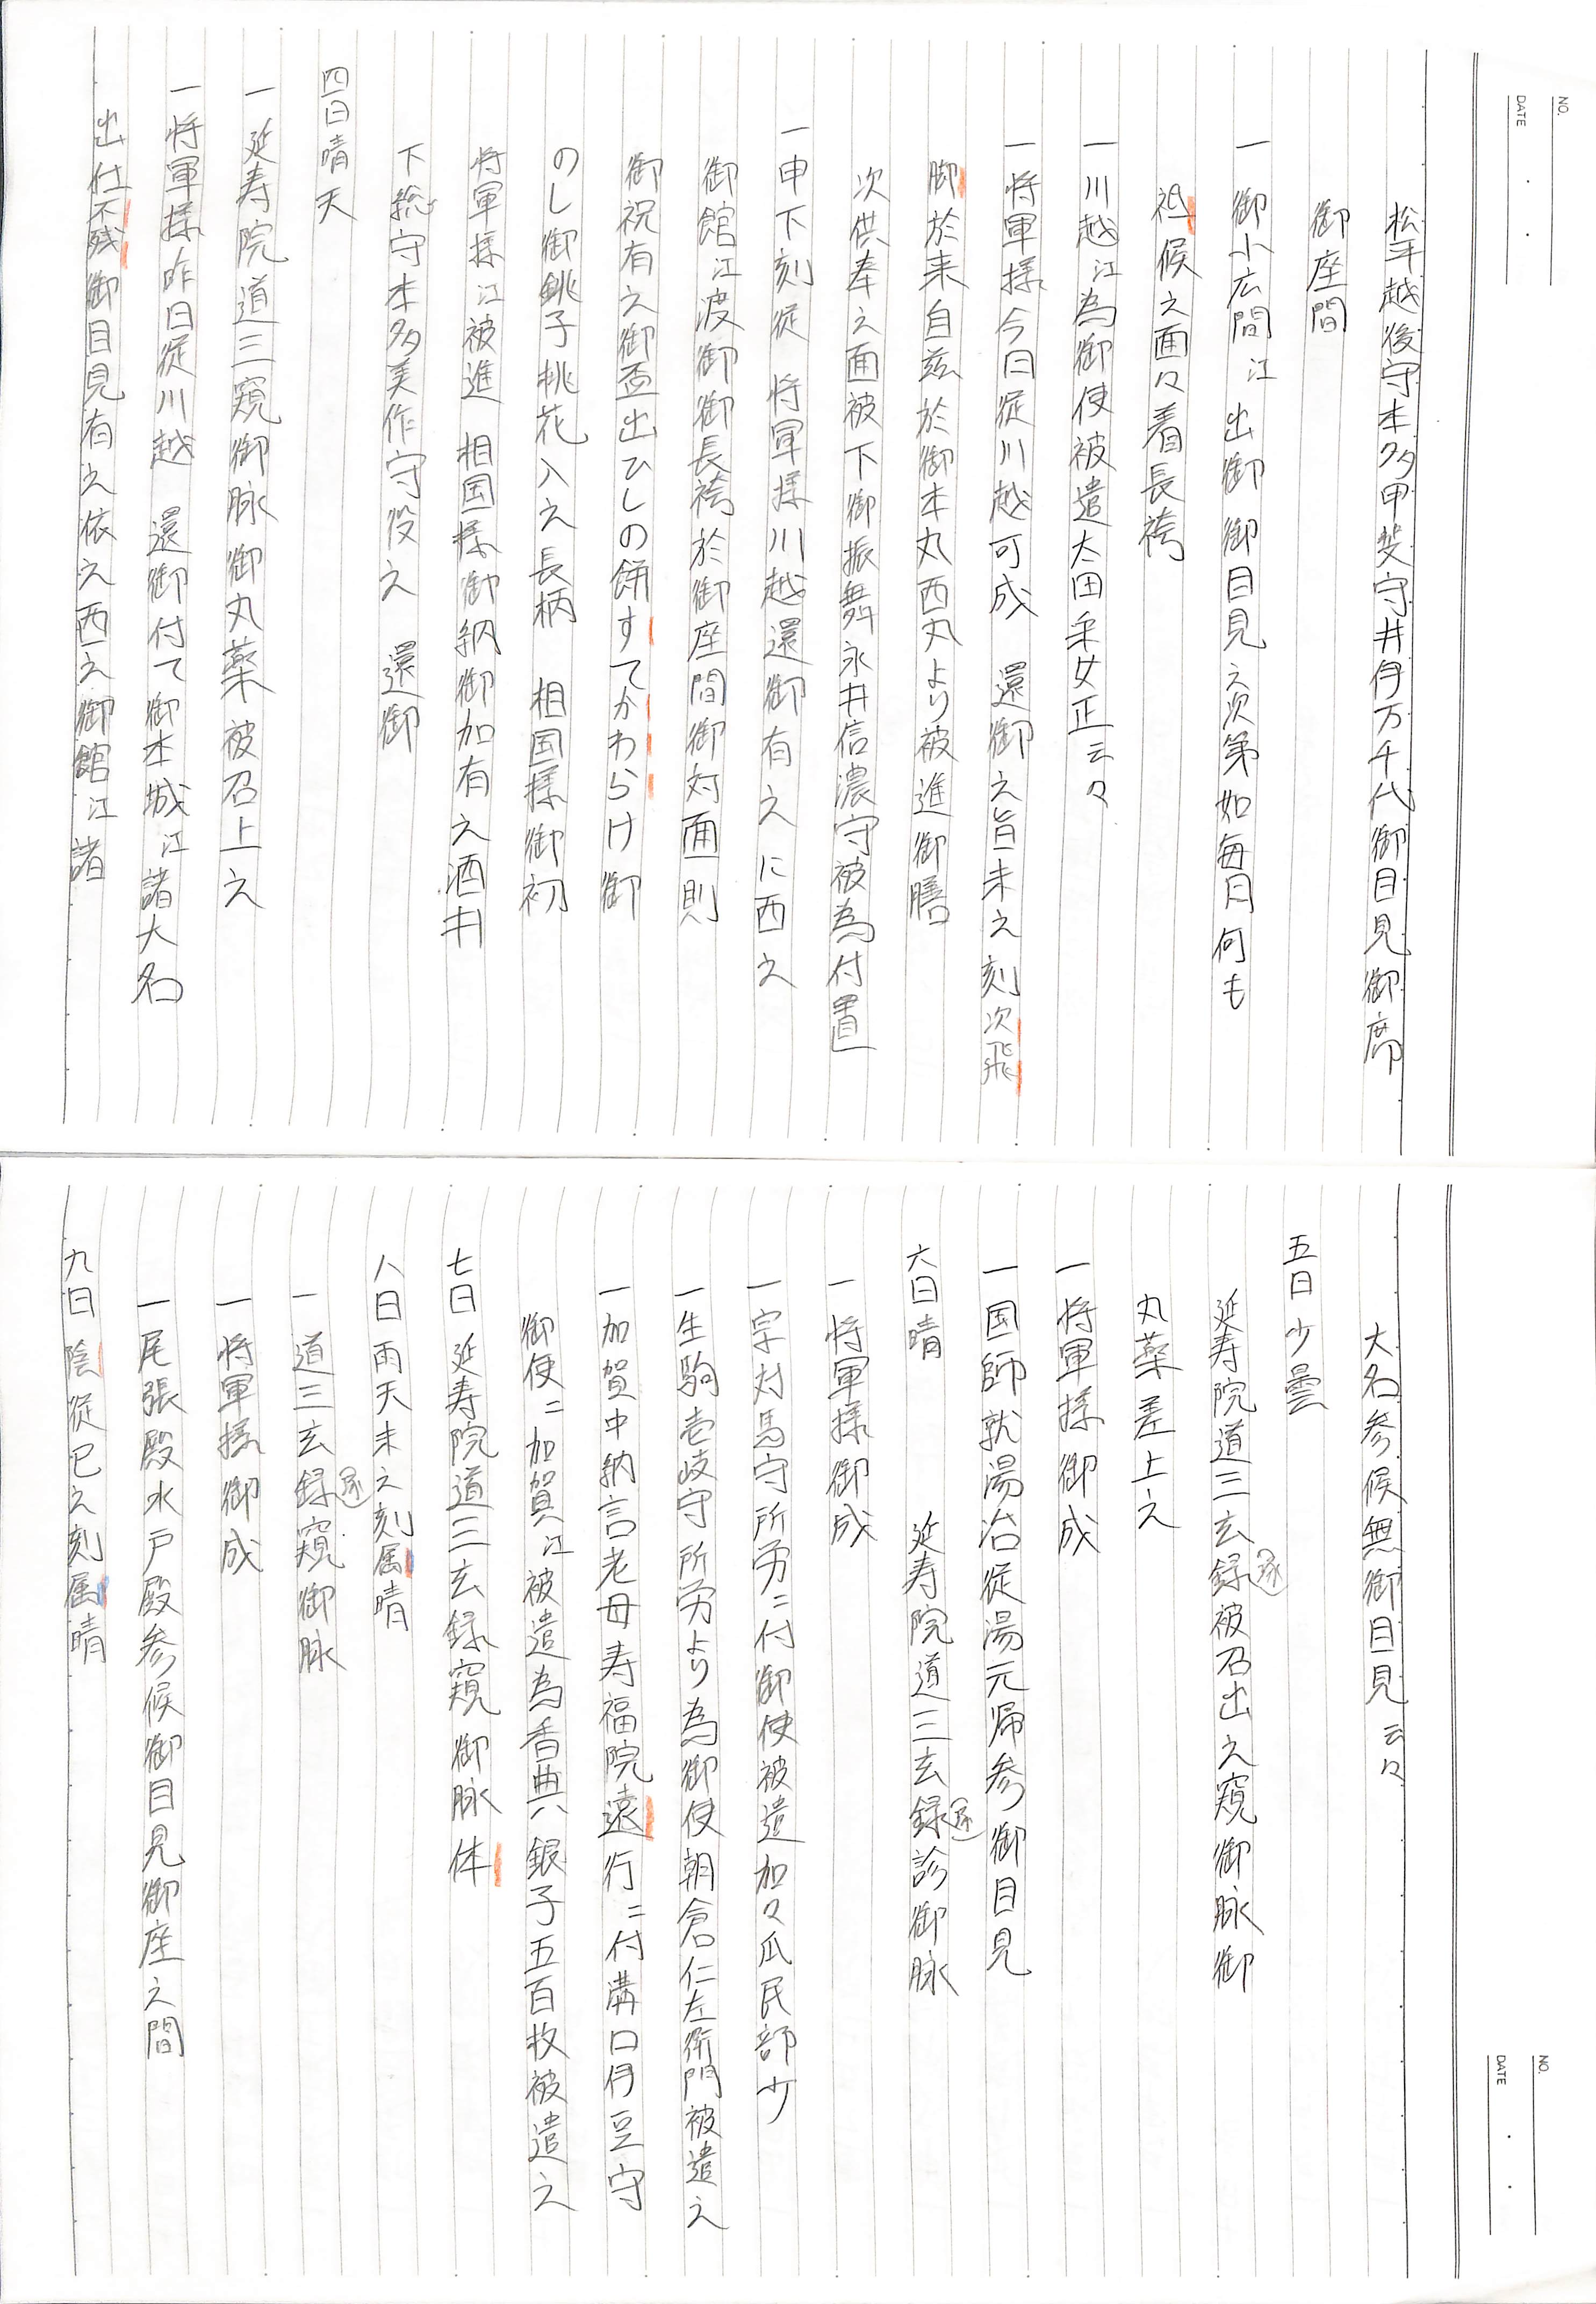 NO.
DATE
松平越後守本多甲斐守井伊万千代御目見御席
御座間
一御小広間江 出御 御目見之次第如毎日何も
祗候之面々着長袴
一川越江為御使被遣太田采女正云々
一将軍様今日従川越可成 還御之旨未之刻次飛
脚於来自玆於御本丸西丸より被進御膳
次供奉之面被下御振舞永井信濃守被為付置
一申下刻従 将軍様川越還御有之に西之
御館江渡御御長袴於御座間御対面則
御祝有之御盃出ひしの餅すてかわらけ御
のし御銚子桃花入之長柄 相国様御初
将軍様江被進 相国様御納御加有之酒井
下総守本多美作守役之 還御
四日晴天
一延寿院道三窺御脉御丸薬被召上之
一将軍様昨日従川越 還御付て御本城江諸大名
出仕不残御目見有之依之西之御館江諸
NO.
DATE
大名参候無御目見云々
五日少曇
延寿院道三玄録被召出之窺御脉御
丸薬差上之
一将軍様御成
一国師就湯治従湯元帰参御目見
六日晴 延寿院道三玄録診御脉
一将軍様御成
一宗対馬守所労ニ付御使被遣加々爪民部少
一生駒壱岐守所労より為御使朝倉仁左衛門被遣之
一加賀中納言老母寿福院遠行ニ付溝口伊豆守
御使ニ加賀江被遣為香典六銀子五百枚被遣之
七日延寿院道三玄録窺御脉体
八日雨天未之刻属晴
一道三玄録窺御脉
一将軍様御成
一尾張殿水戸殿参候御目見御座之間
九日陰従巳之刻属晴